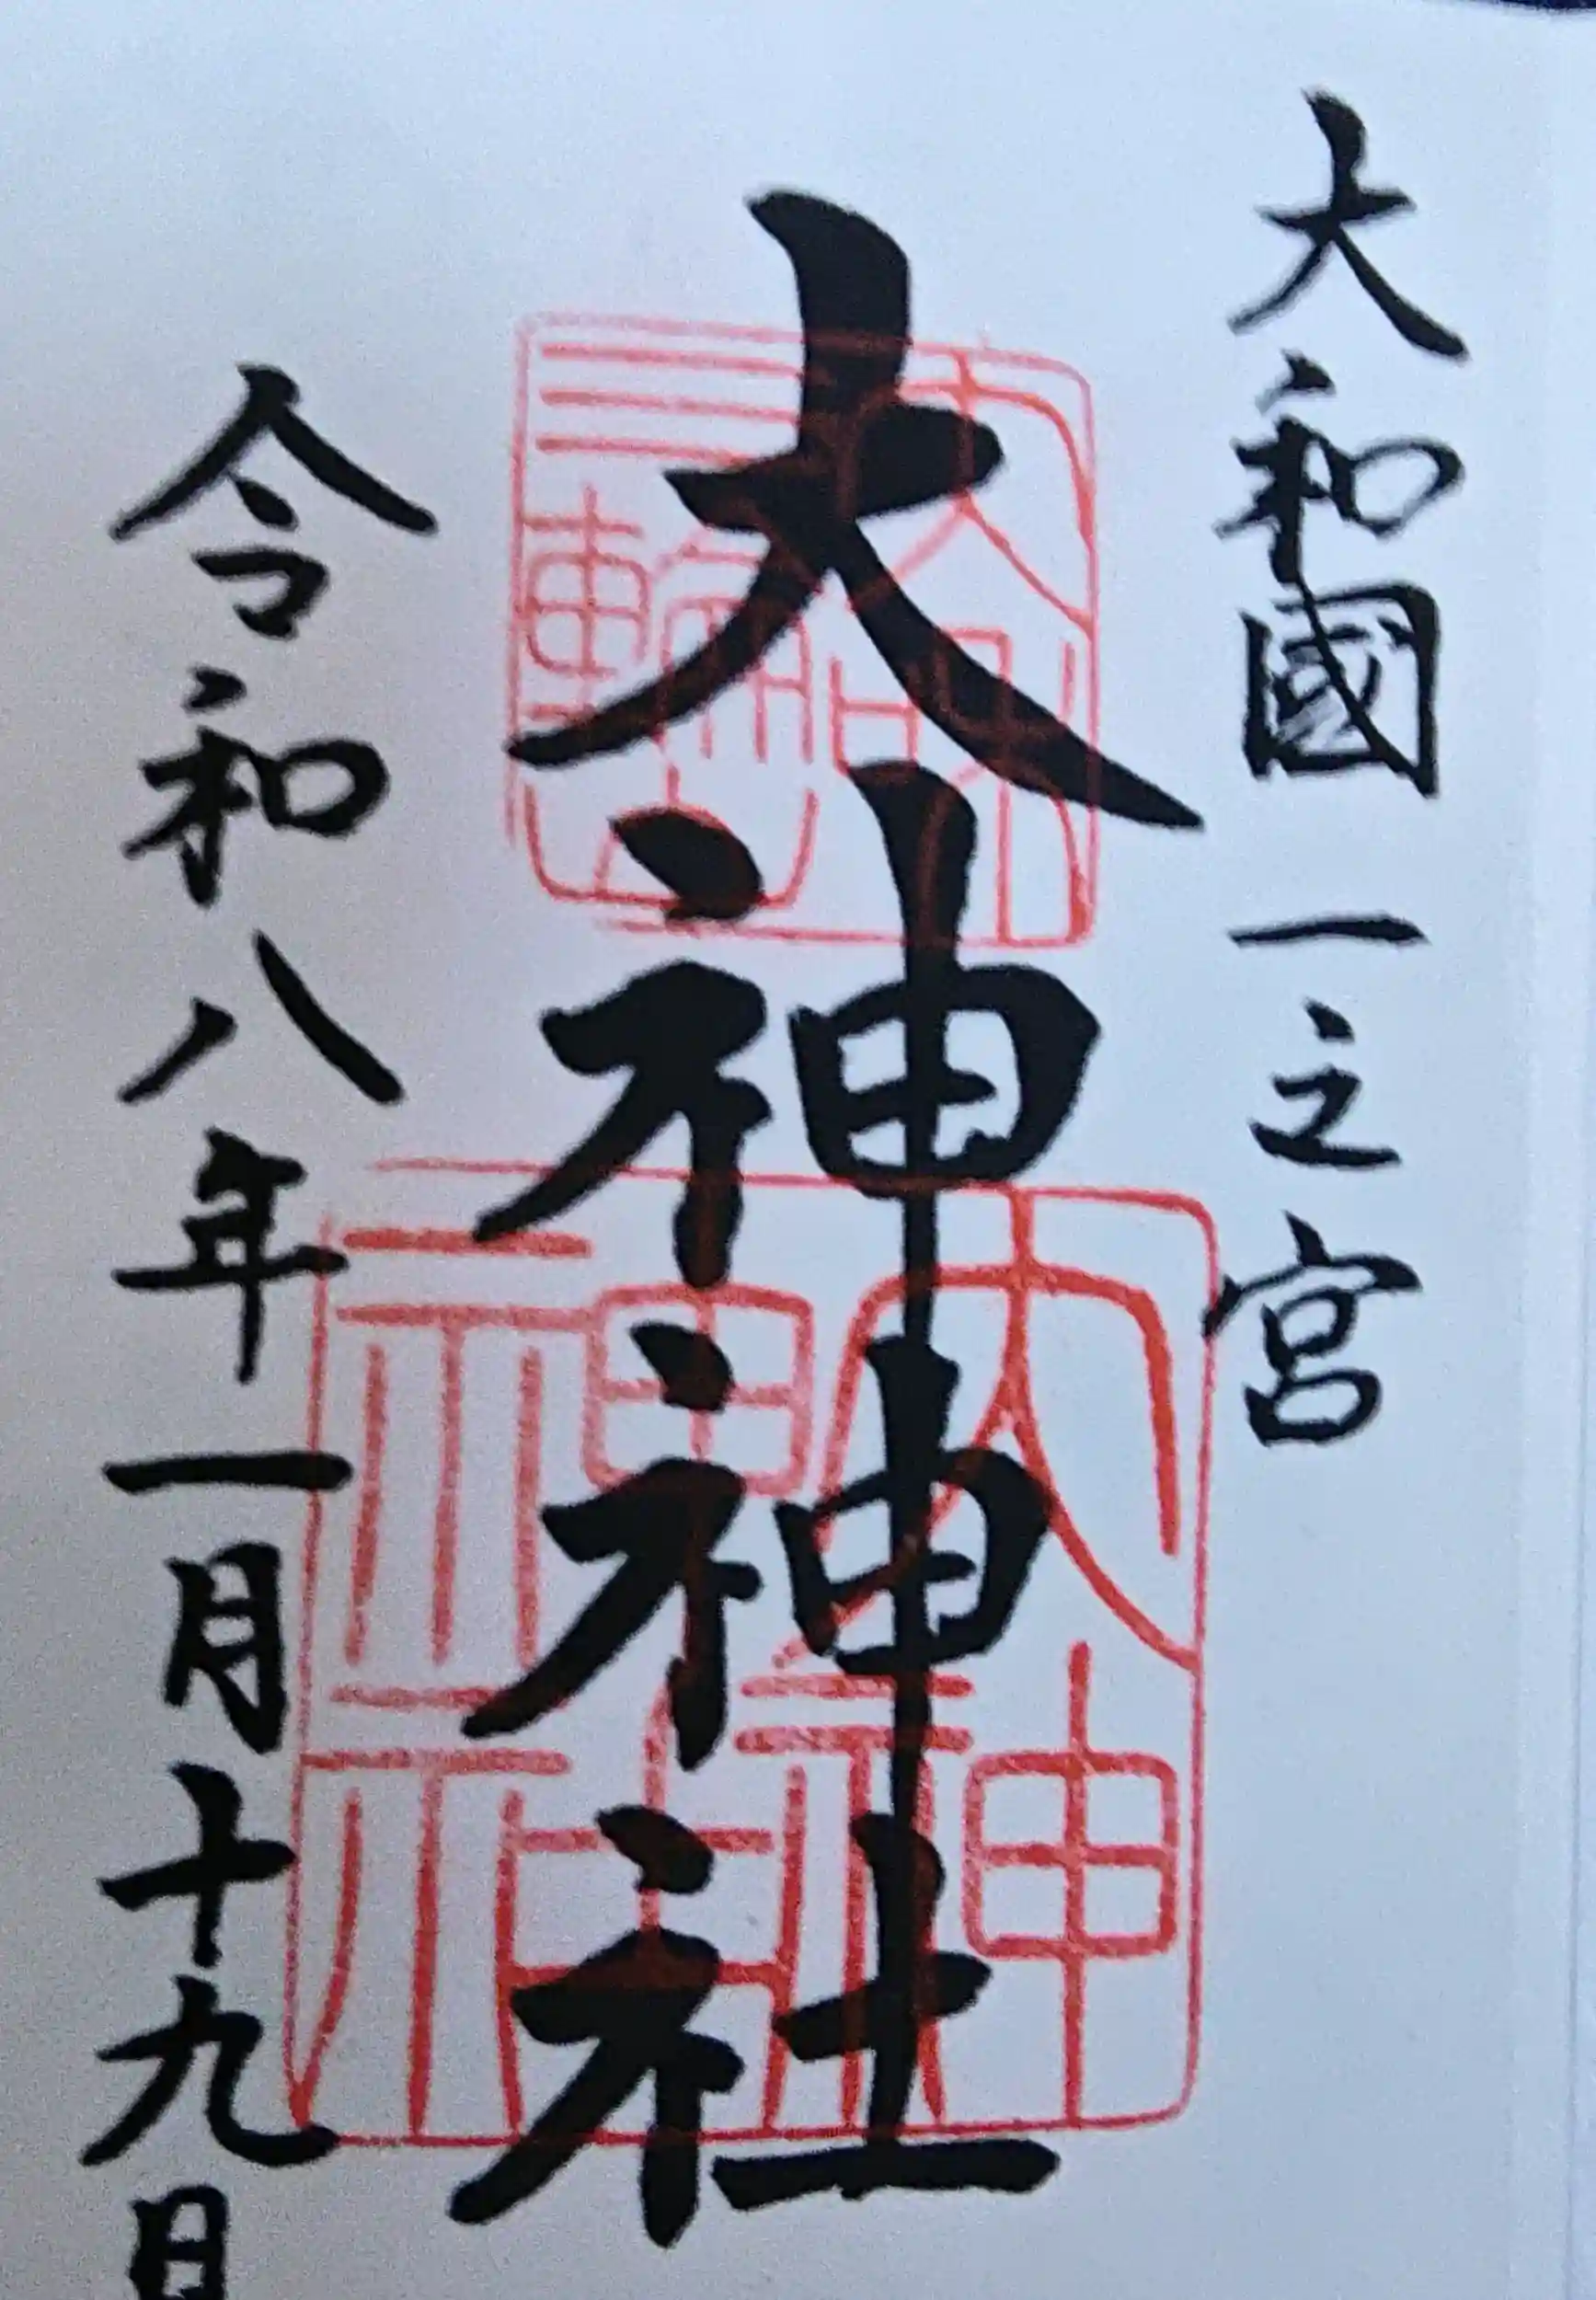 大和國一之宮
大神神社
令和八年一月十九日
大神
神社